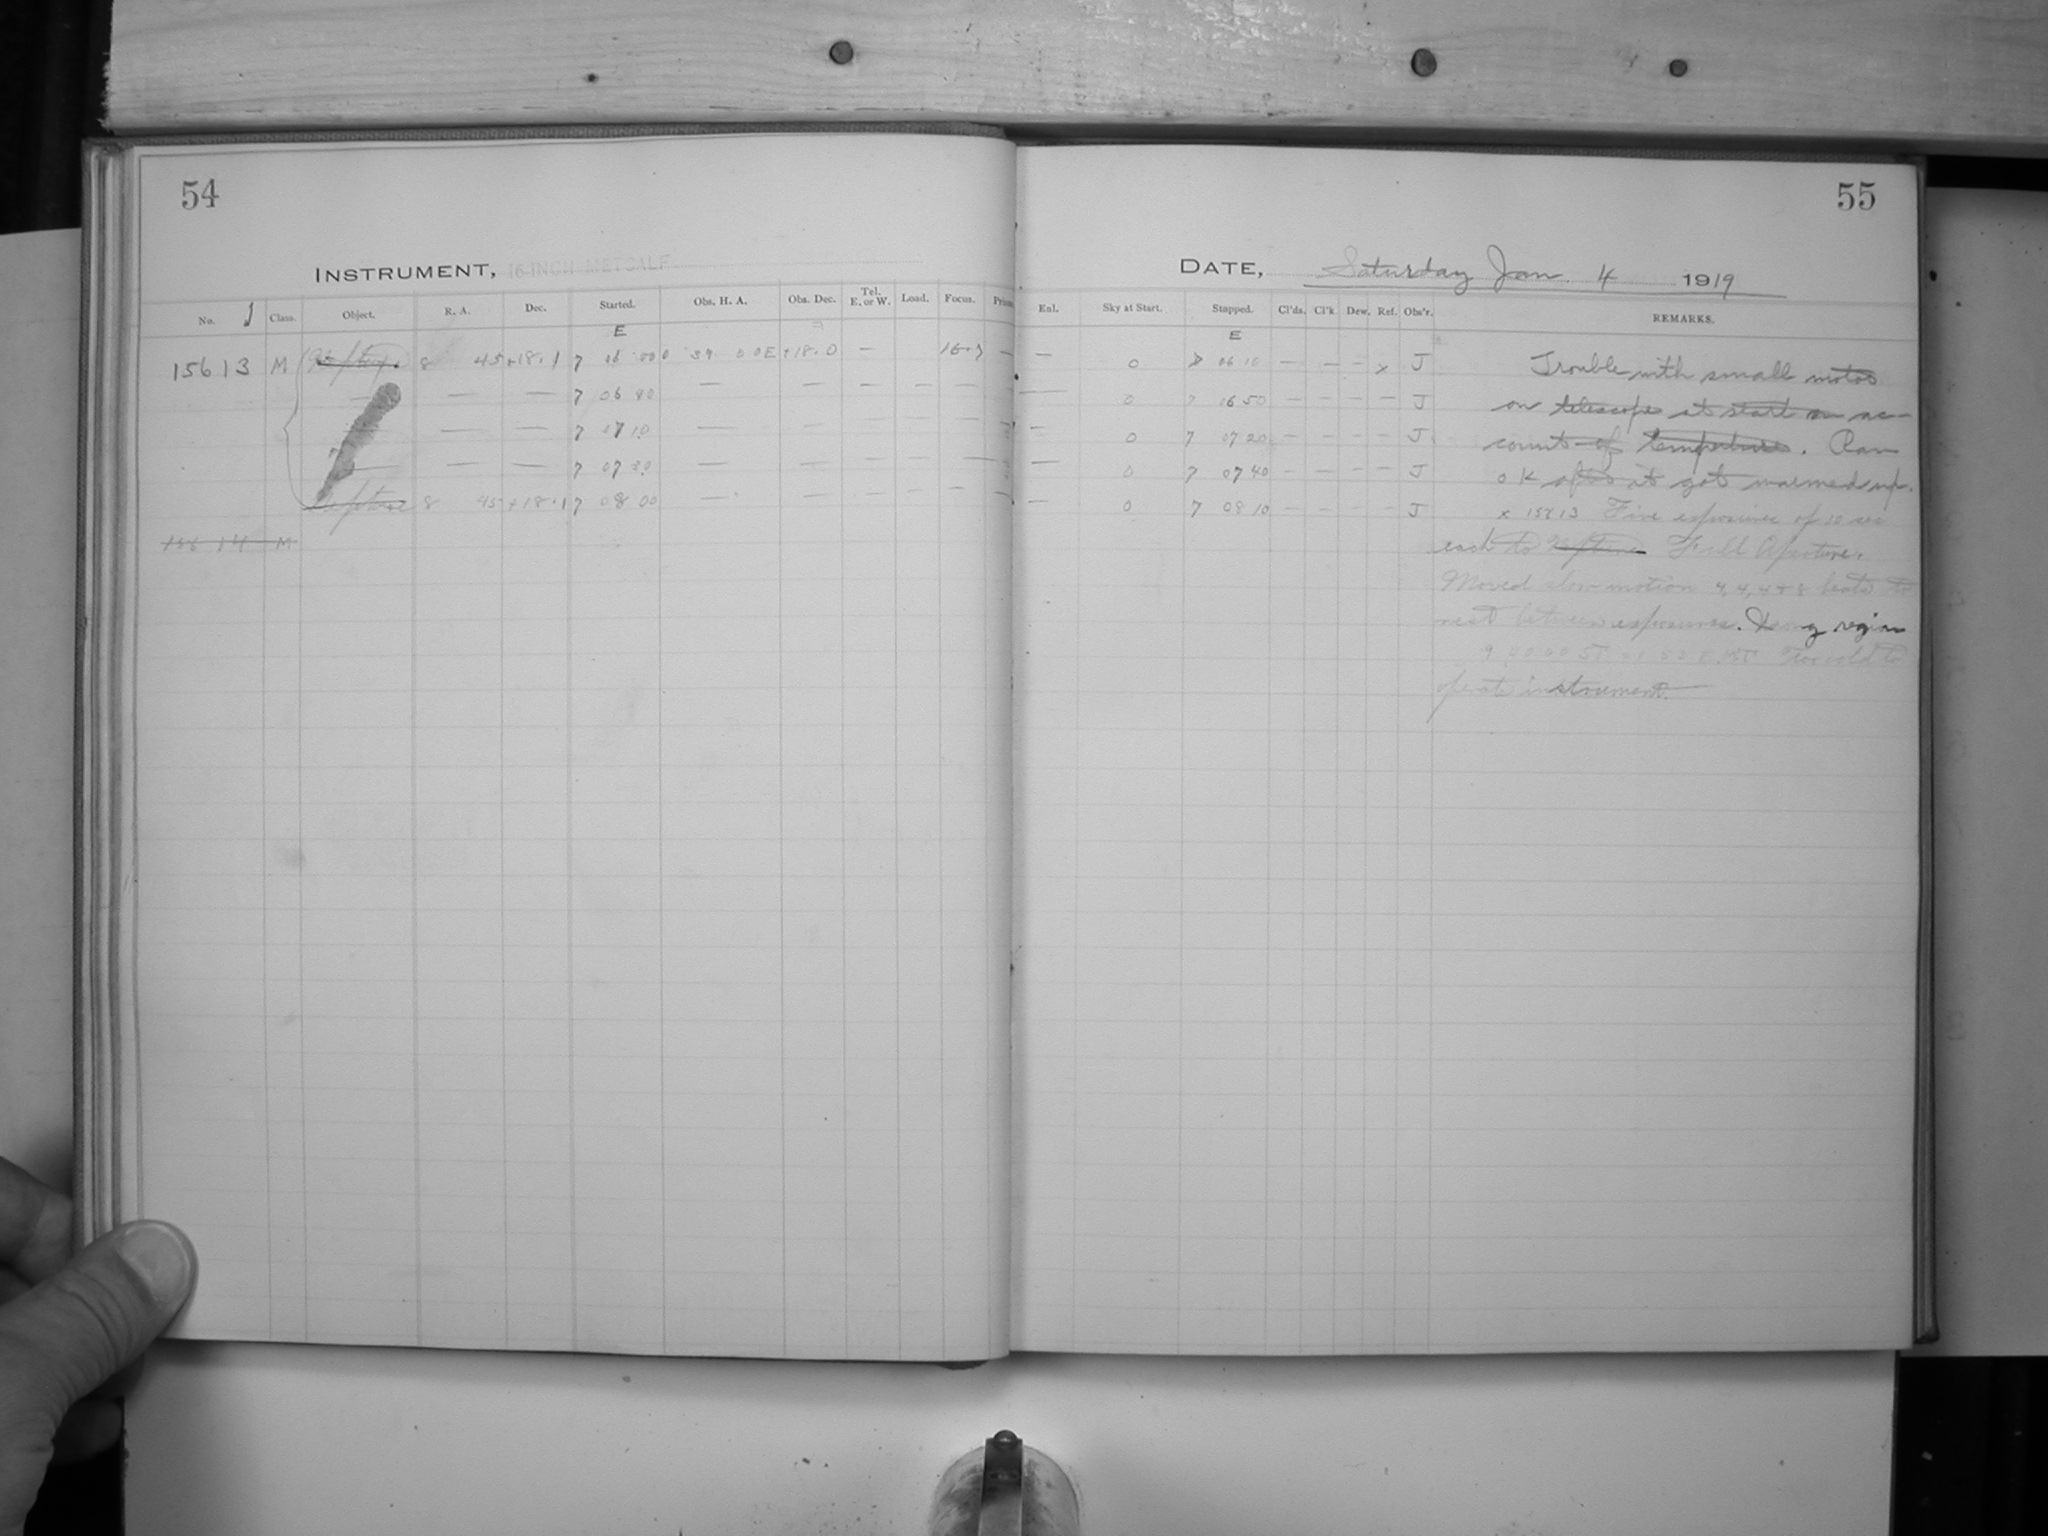 54
INSTRUMENT, 16-INCH METCALF.
No. J Class. Object. R. A. Dec. Started. Obs. H. A. Obs. Dec. Tel. E. or W. Load. Focus.
E
15613 M Neptune 8 45 +18.1 7 06 00 +18.0 — 16.7 —
— — — 7 06 40 — — — — — —
— — — 7 07 10 — — — — — —
— — — 7 07 30 — — — — — —
Neptune 8 45 +18.1 7 08 00 — — — — — —
156 14 M
55
DATE, Saturday Jan. 4 1919
Enl. Sky at Start. Stopped. Cl'ds. Cl'k Dew. Ref. Obs'r. REMARKS.
E
— 0 7 06 10 — — — x J Trouble with small motor
— 0 7 06 50 — — — — J on telescope at start on ac-
— 0 7 07 20 — — — — J. count of temperature. Ran
— 0 7 07 40 — — — — J O K after it got warmed up.
— 0 7 08 10 — — — — J x 15613 Five exposures of 10 sec
each to Neptune Full Aperture.
Moved slow motion 4, 4, 4 & 8 beats to
west between exposures. Wrong region
Too cold to
operate instrument.